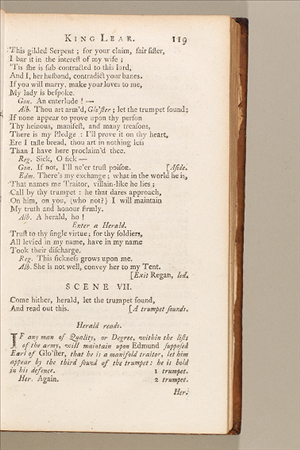 KING LEAR. 119
This gilded Serpent ; for your claim, fair sister,
I bar it in the interest of my wife ;
'Tis she is sub contracted to this lord,
And I, her husband, contradict your banes.
If you will marry, make your loves to me,
My lady is bespoke.
Gon. An enterlude ! —
Alb. Thou art arm'd, Glo'ster ; let the trumpet sound;
If none appear to prove upon thy person
Thy heinous, manifest, and many treasons,
There is my Pledge : I'll prove it on thy heart,
Ere I taste bread, thou art in nothing less
Than I have here proclaim'd thee.
Reg. Sick, O sick —
Gon. If not, I'll ne'er trust poison. [Aside.
Edm. There's my exchange ; what in the world he is,
That names me Traitor, villain-like he lies ;
Call by thy trumpet : he that dares approach,
On him, on you, (who not?) I will maintain
My truth and honour firmly.
Alb. A herald, ho !
Enter a Herald.
Trust to thy single virtue; for thy soldiers,
All levied in my name, have in my name
Took their discharge.
Reg. This sickness grows upon me.
Alb. She is not well, convey her to my Tent.
[Exit Regan, led.
SCENE VII.
Come hither, herald, let the trumpet sound,
And read out this. [A trumpet sounds.
Herald reads.
IF any man of Quality, or Degree, within the lists
of the army, will maintain upon Edmund supposed
Earl of Glo'ster, that he is a manifold traitor, let him
appear by the third sound of the trumpet: he is bold
in his defence. 1 trumpet.
Her. Again. 2 trumpet.
Her.